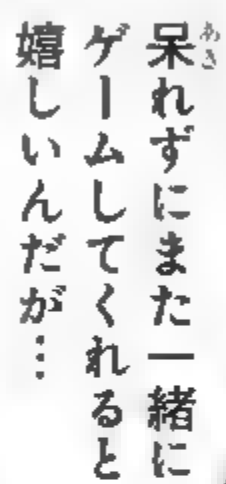 呆れずにまた一緒に
ゲームしてくれると
嬉しいんだが…